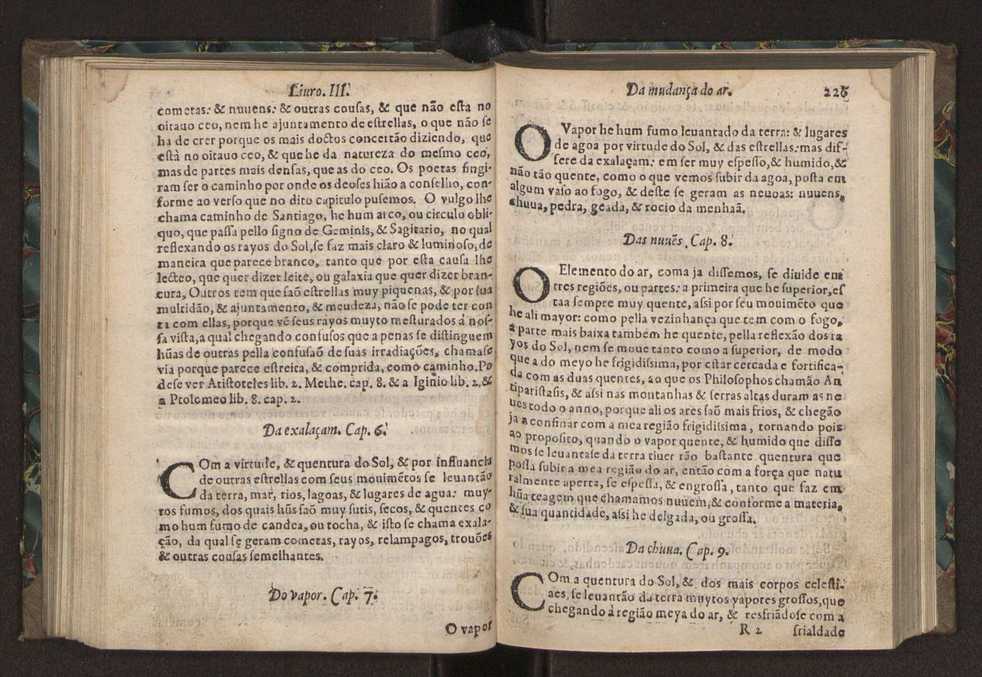 Liuro. III.
cometas: & nuuens: & outras cousas, & que não està no
oitauo ceo, nem he ajuntamento de estrellas, o que não se
ha de crer porque os mais doctos concertão diziendo, que
està no oitauo ceo, & que he da natureza do mesmo ceo,
mas de partes mais densas, que as do ceo. Os poetas fingi-
ram ser o caminho por onde os deoses hião a conselho, con-
forme ao verso que no dito capitulo pusemos. O vulgo lhe
chama caminho de Santiago, he hum arco, ou circulo obli-
quo, que passa pello signo de Geminis, & Sagitario, no qual
reflexando os rayos do Sol, se faz mais claro & luminoso, de
maneira que parece branco, tanto que por esta causa lhe
lecteo, que quer dizer leite, ou galaxia que quer dizer bran-
cura, Outros tem que saõ estrellas muy piquenas, & por sua
multidão, & ajuntamento, & meudeza, não se pode ter con
ta com ellas, porque vẽ seus rayos muyto mesturados á nos-
sa vista, a qual chegando confusos que a penas se distinguem
hũas de outras pella confusaõ de suas irradiações, chamase
via porque parece estreita, & comprida, como caminho. Po
dese ver Aristoteles lib. 2. Methe. cap. 8. & a Iginio lib. 2. &
a Ptolomeo lib. 8. cap. 2.
Da exalaçam. Cap. 6.
COm a virtude, & quentura do Sol, & por influencia
de outras estrellas com seus mouimẽtos se leuantão
da terra, mar, rios, lagoas, & lugares de agua: muy-
tos fumos, dos quais hũs saõ muy sutis, secos, & quentes co
mo hum fumo de candea, ou tocha, & isto se chama exala-
ção, da qual se geram cometas, rayos, relampagos, trouões
& outras cousas semelhantes.
Do vapor. Cap. 7.
O vapor
Da mudança do ar. 226
O Vapor he hum fumo leuantado da terra: & lugares
de agoa por virtude do Sol, & das estrellas: mas dif-
fere da exalaçam: em ser muy espesso, & humido, &
não tão quente, como o que vemos subir da agoa, posta em
algum vaso ao fogo, & deste se geram as neuoas: nuuens,
chuua, pedra, geada, & rocio da menhaã.
Das nuuẽs. Cap. 8.
O Elemento do ar, coma ja dissemos, se diuide em
tres regiões, ou partes: a primeira que he superior, es
taa sempre muy quente, assi por seu mouimẽto que
he ali mayor: como pella vezinhança que tem com o fogo,
a parte mais baixa tambem he quente, pella reflexão dos ra
yos do Sol, nem se moue tanto como a superior, de modo
que a do meyo he frigidissima, por estar cercada e fortifica-
da com as duas quentes, ao que os Philosophos chamão An
tiparistasis, & assi nas montanhas & serras altas duram as ne
ues todo o anno, porque ali os ares saõ mais frios, & chegão
ja a confinar com a mea região frigidissima, tornando pois
ao proposito, quando o vapor quente, & humido que disse
mos se leuantase da terra tiuer tão bastante quentura que
possa subir a mea região do ar, então com a força que natu
ralmente aperta, se espessa, & engrossa, tanto que faz em
hũa teagem que chamamos nuuem, & conforme a materia,
& sua quantidade, assi he delgada, ou grossa.
Da chuua. Cap. 9.
COm a quentura do Sol, & dos mais corpos celesti-
aes, se leuantão da terra muytos vapores grossos, que
chegando à região meya do ar, & resfriãdose com a
R 2 frialdade